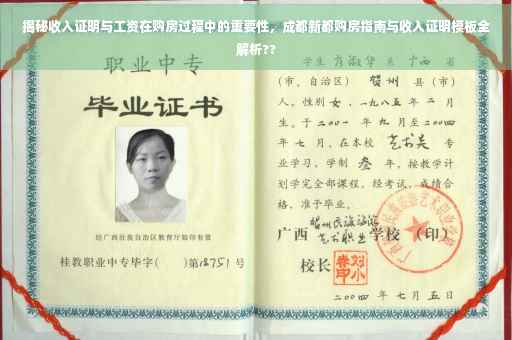 揭秘收入证明与工资在购房过程中的重要性，成都新都购房指南与收入证明模板全
解析??
职业中专
毕业证书
经广西壮族自治区教育厅验印有效
桂教职业中专毕字（ ）第18751号
学生 系 广西 省
（市、自治区） 贺州 县（市）
人，性别女，一九八五年 二 月
生。于二00一 年九 月至二00四
年 七 月，在本校 专
业学习，学制 叁 年，按教学计
划学完全部课程，经考试，成绩合
格，准予毕业。
广西 贺州民族旅游艺术职业学校（印）
校长
二00四 年 七 月 五 日